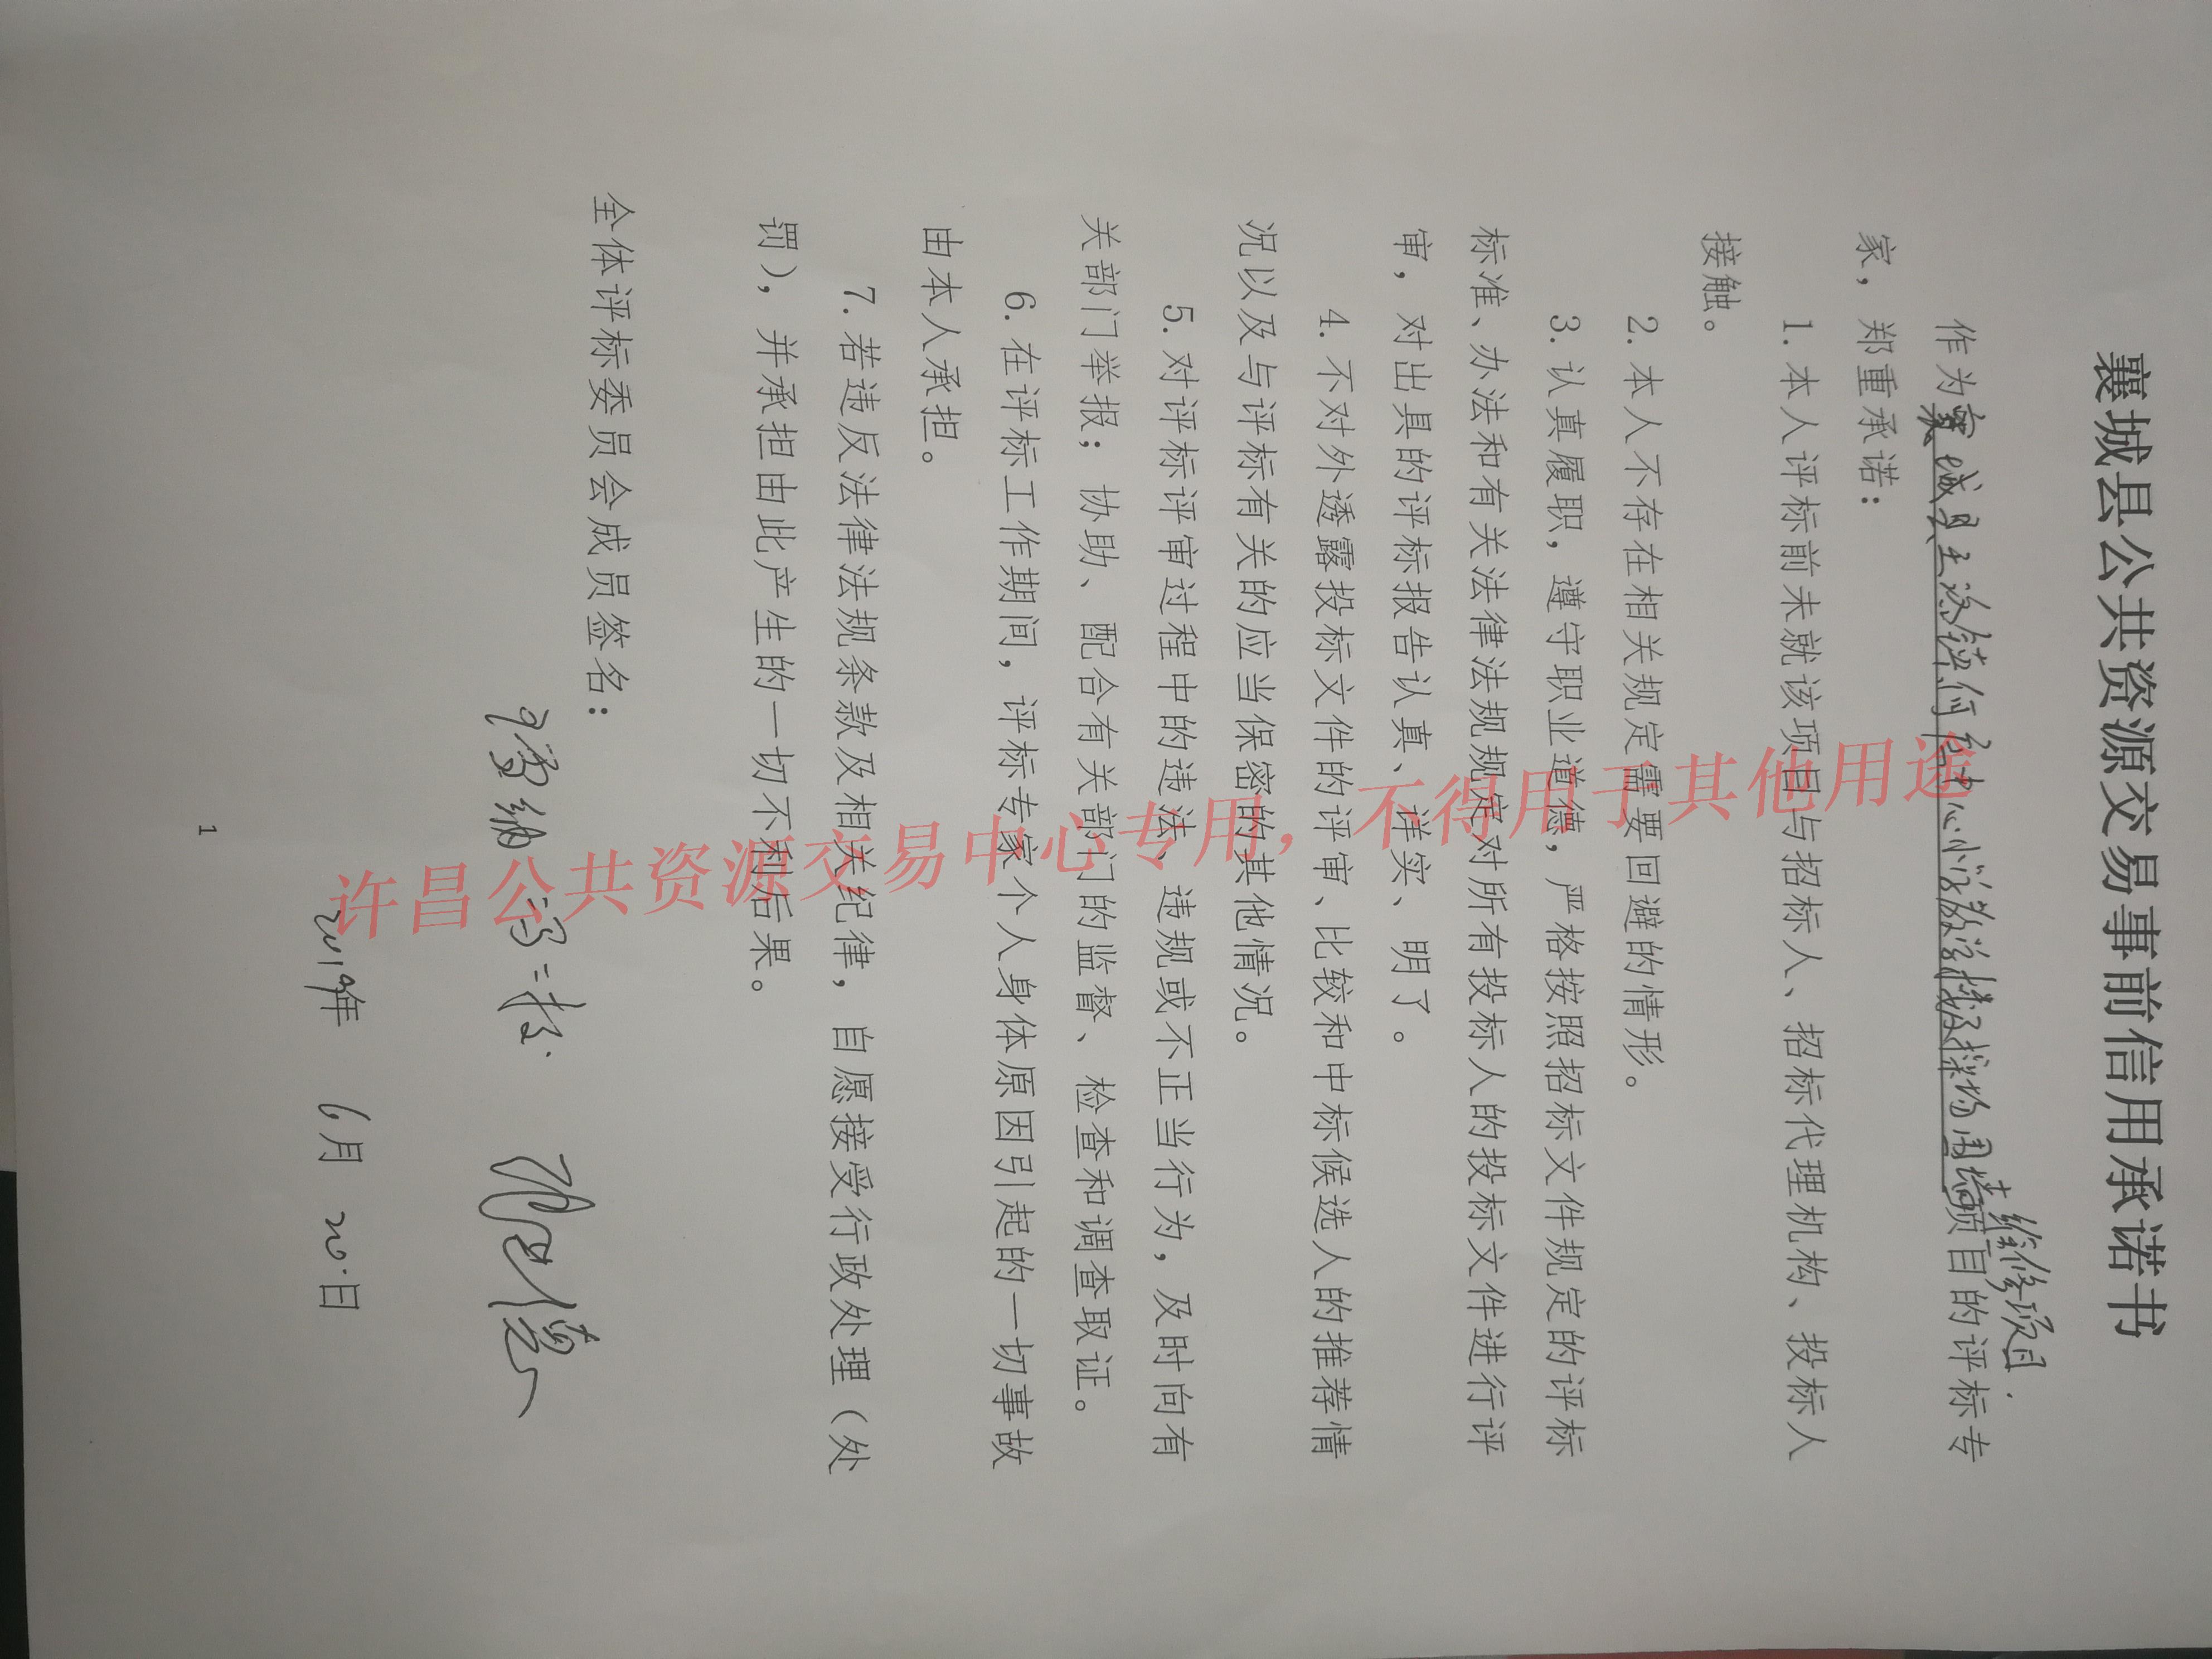 襄城县公共资源交易事前信用承诺书
作为襄城县王洛镇何庄中心小学教学楼及操场围墙项目的评标专
维修项目.
家，郑重承诺：
1.本人评标前未就该项目与招标人、招标代理机构、投标人
接触。
2.本人不存在相关规定需要回避的情形。
3.认真履职，遵守职业道德，严格按照招标文件规定的评标
标准、办法和有关法律法规规定对所有投标人的投标文件进行评
审，对出具的评标报告认真、详实、明了。
4.不对外透露投标文件的评审、比较和中标候选人的推荐情
况以及与评标有关的应当保密的其他情况。
5.对评标评审过程中的违法、违规或不正当行为，及时向有
关部门举报；协助、配合有关部门的监督、检查和调查取证。
6.在评标工作期间，评标专家个人身体原因引起的一切事故
由本人承担。
7.若违反法律法规条款及相关纪律，自愿接受行政处理（处
罚），并承担由此产生的一切不利后果。
全体评标委员会成员签名：
2019年 6月 20日
1
许昌公共资源交易中心专用，不得用于其他用途